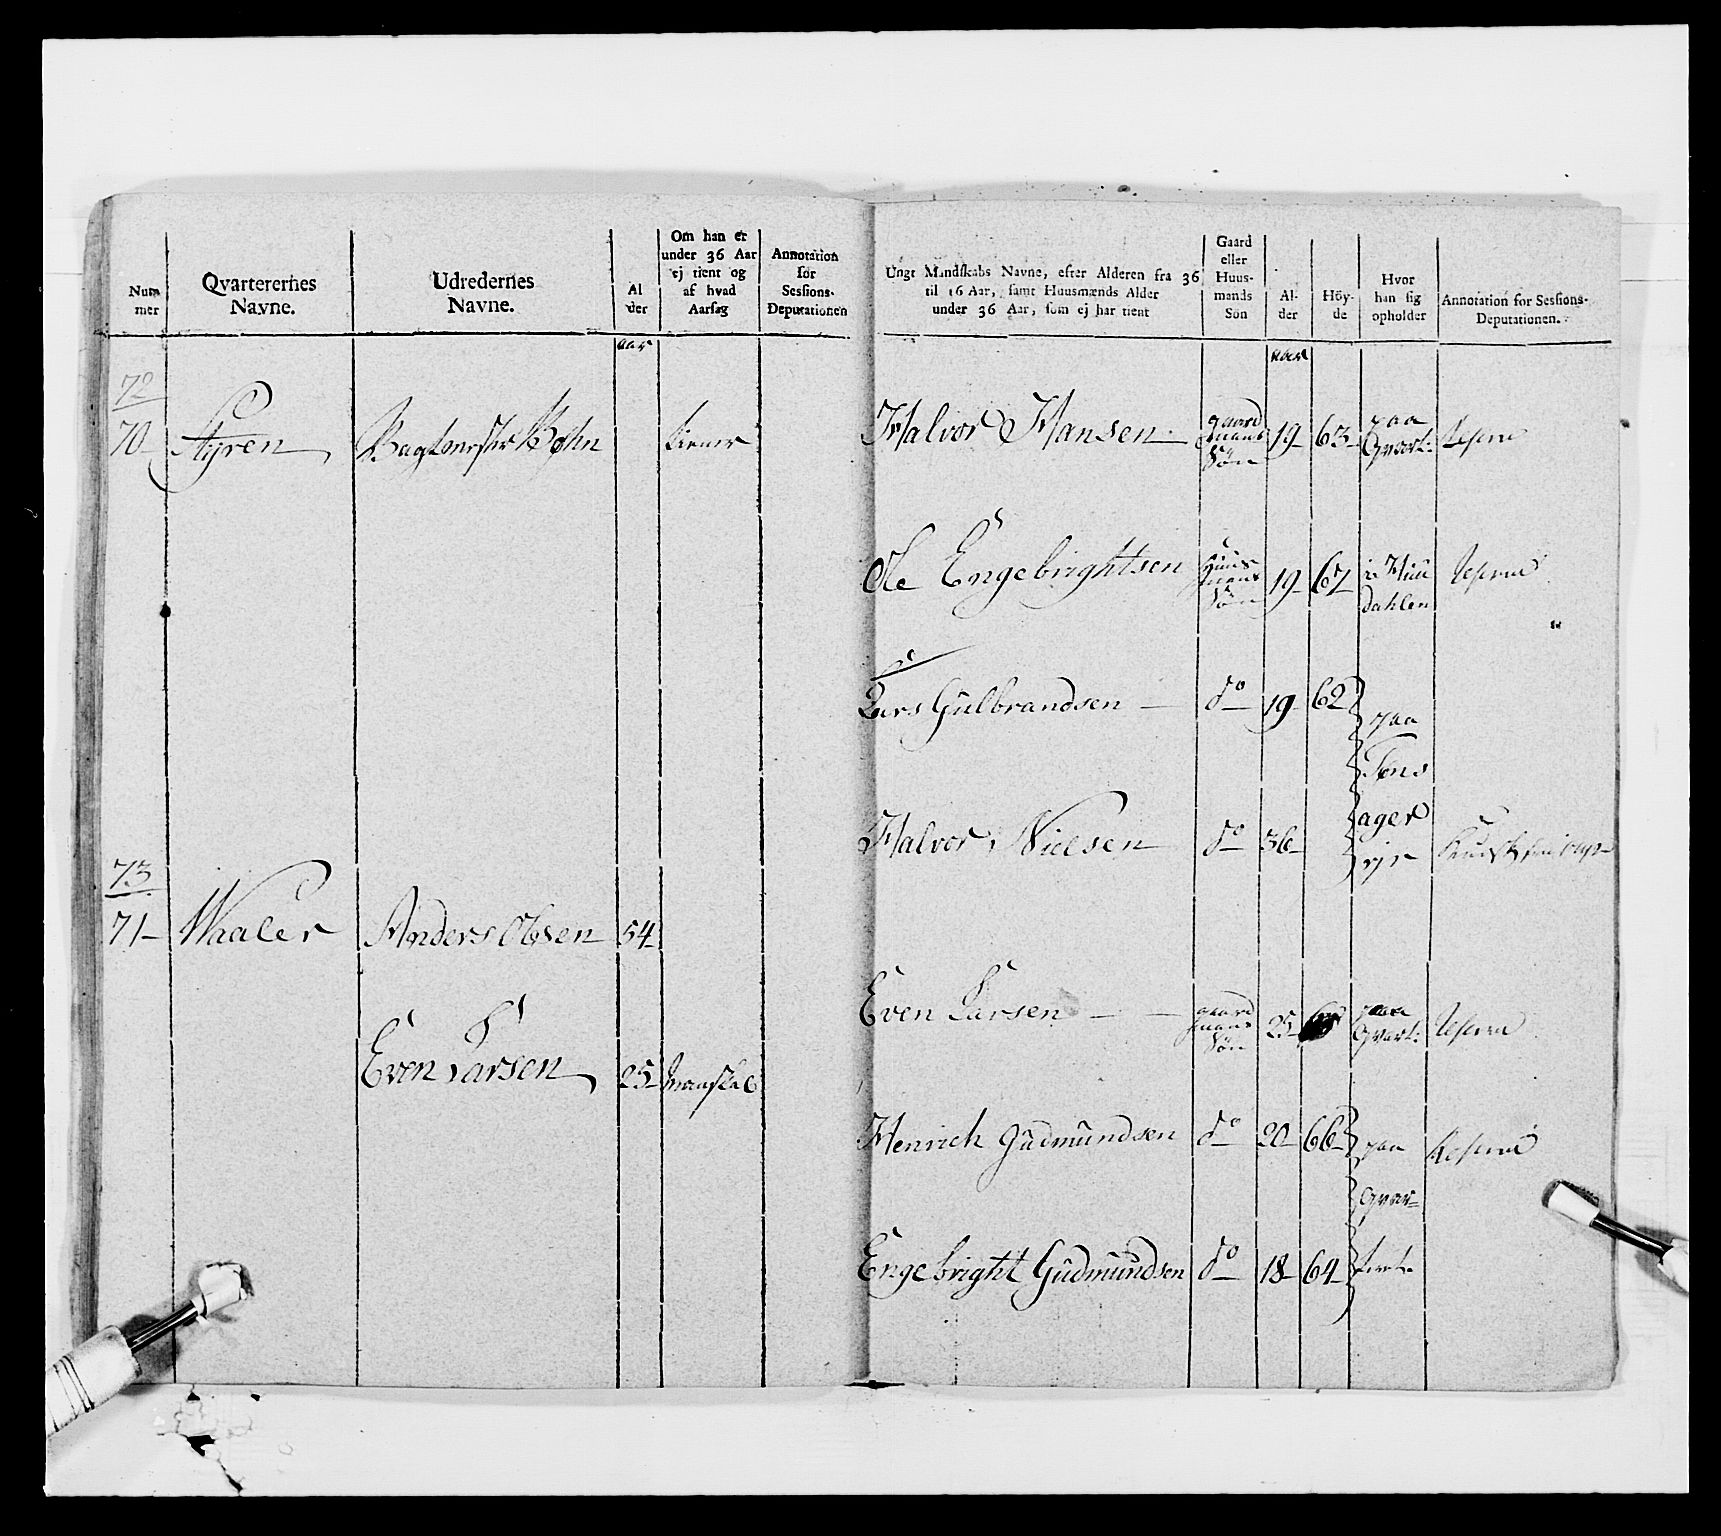 Num
mer
Qvarterernes
Navne.
Udredernes
Navne.
Al
der
Om han er
under 36 Aar
ej tient og
af hvad
Aarsag
Annotation
for
Sessions-
Deputationen
Ungt Mandskabs Navne, efter Alderen fra 36
til 16 Aar, samt Huusmænds Alder
under 36 Aar, som ej har tient
Gaard
eller
Huus-
mands
Søn
Al-
der
Høy-
de
Hvor
han sig
opholder
Annotation for Sessions-
Deputationen.
aar
72
70 Styren
tiener
Halvor Hansen gaard mans Søn 19 63 paa Qvart:
Ole Engebrightsen Huus mans Søn 19 67 dahlen
Lars Gulbrandsen do 19 62 paa
Halvor Nielsen do 36
ager
eje
73
71 Waaler Anders Olsen 54
Even Larsen 25
Even Larsen gaard mans Søn 25 paa Qvart:
Henrich Gudmundsen do 20 66 paa
Qvar-
Engebright Gudmundsen do 18 64